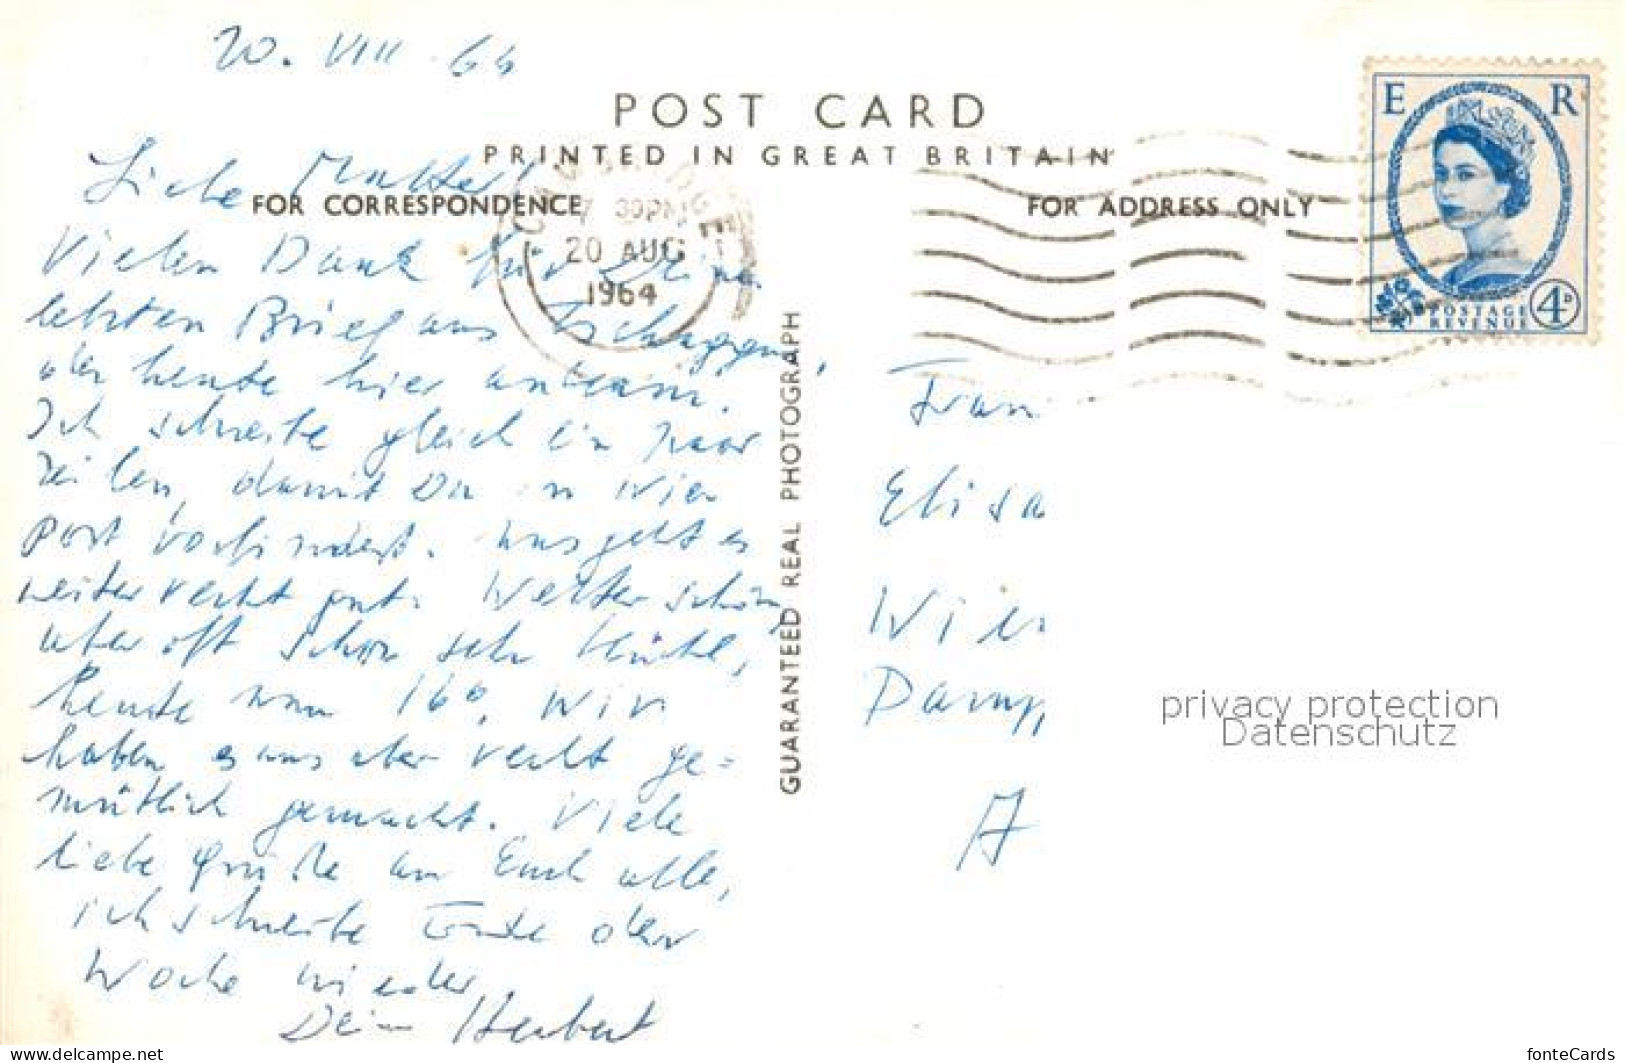 20. VIII 64
POST CARD
PRINTED IN GREAT BRITAIN
FOR CORRESPONDENCE
FOR ADDRESS ONLY
7 30PM
20 AUG
1964
E R
POSTAGE
REVENUE
4D
Liebe Mutter!
Vielen Dank für Deinen
letzten Brief aus
der heute hier ankam.
Ich schreibe gleich ein paar
Zeilen, damit Du in Wien
Post vorfindest. Uns geht es
weiter recht gut. Wetter schön
aber oft schon sehr kühl,
heute nur 16°. Wir
haben es uns aber recht ge=
mütlich gemacht. Viele
liebe Grüße an Euch alle,
ich schreibe Ende der
Woche wieder
Dein Herbert
GUARANTEED REAL PHOTOGRAPH
Frau
Elisa
Wien
Damp
A
privacy protection
Datenschutz
www.delcampe.net
fonteCards